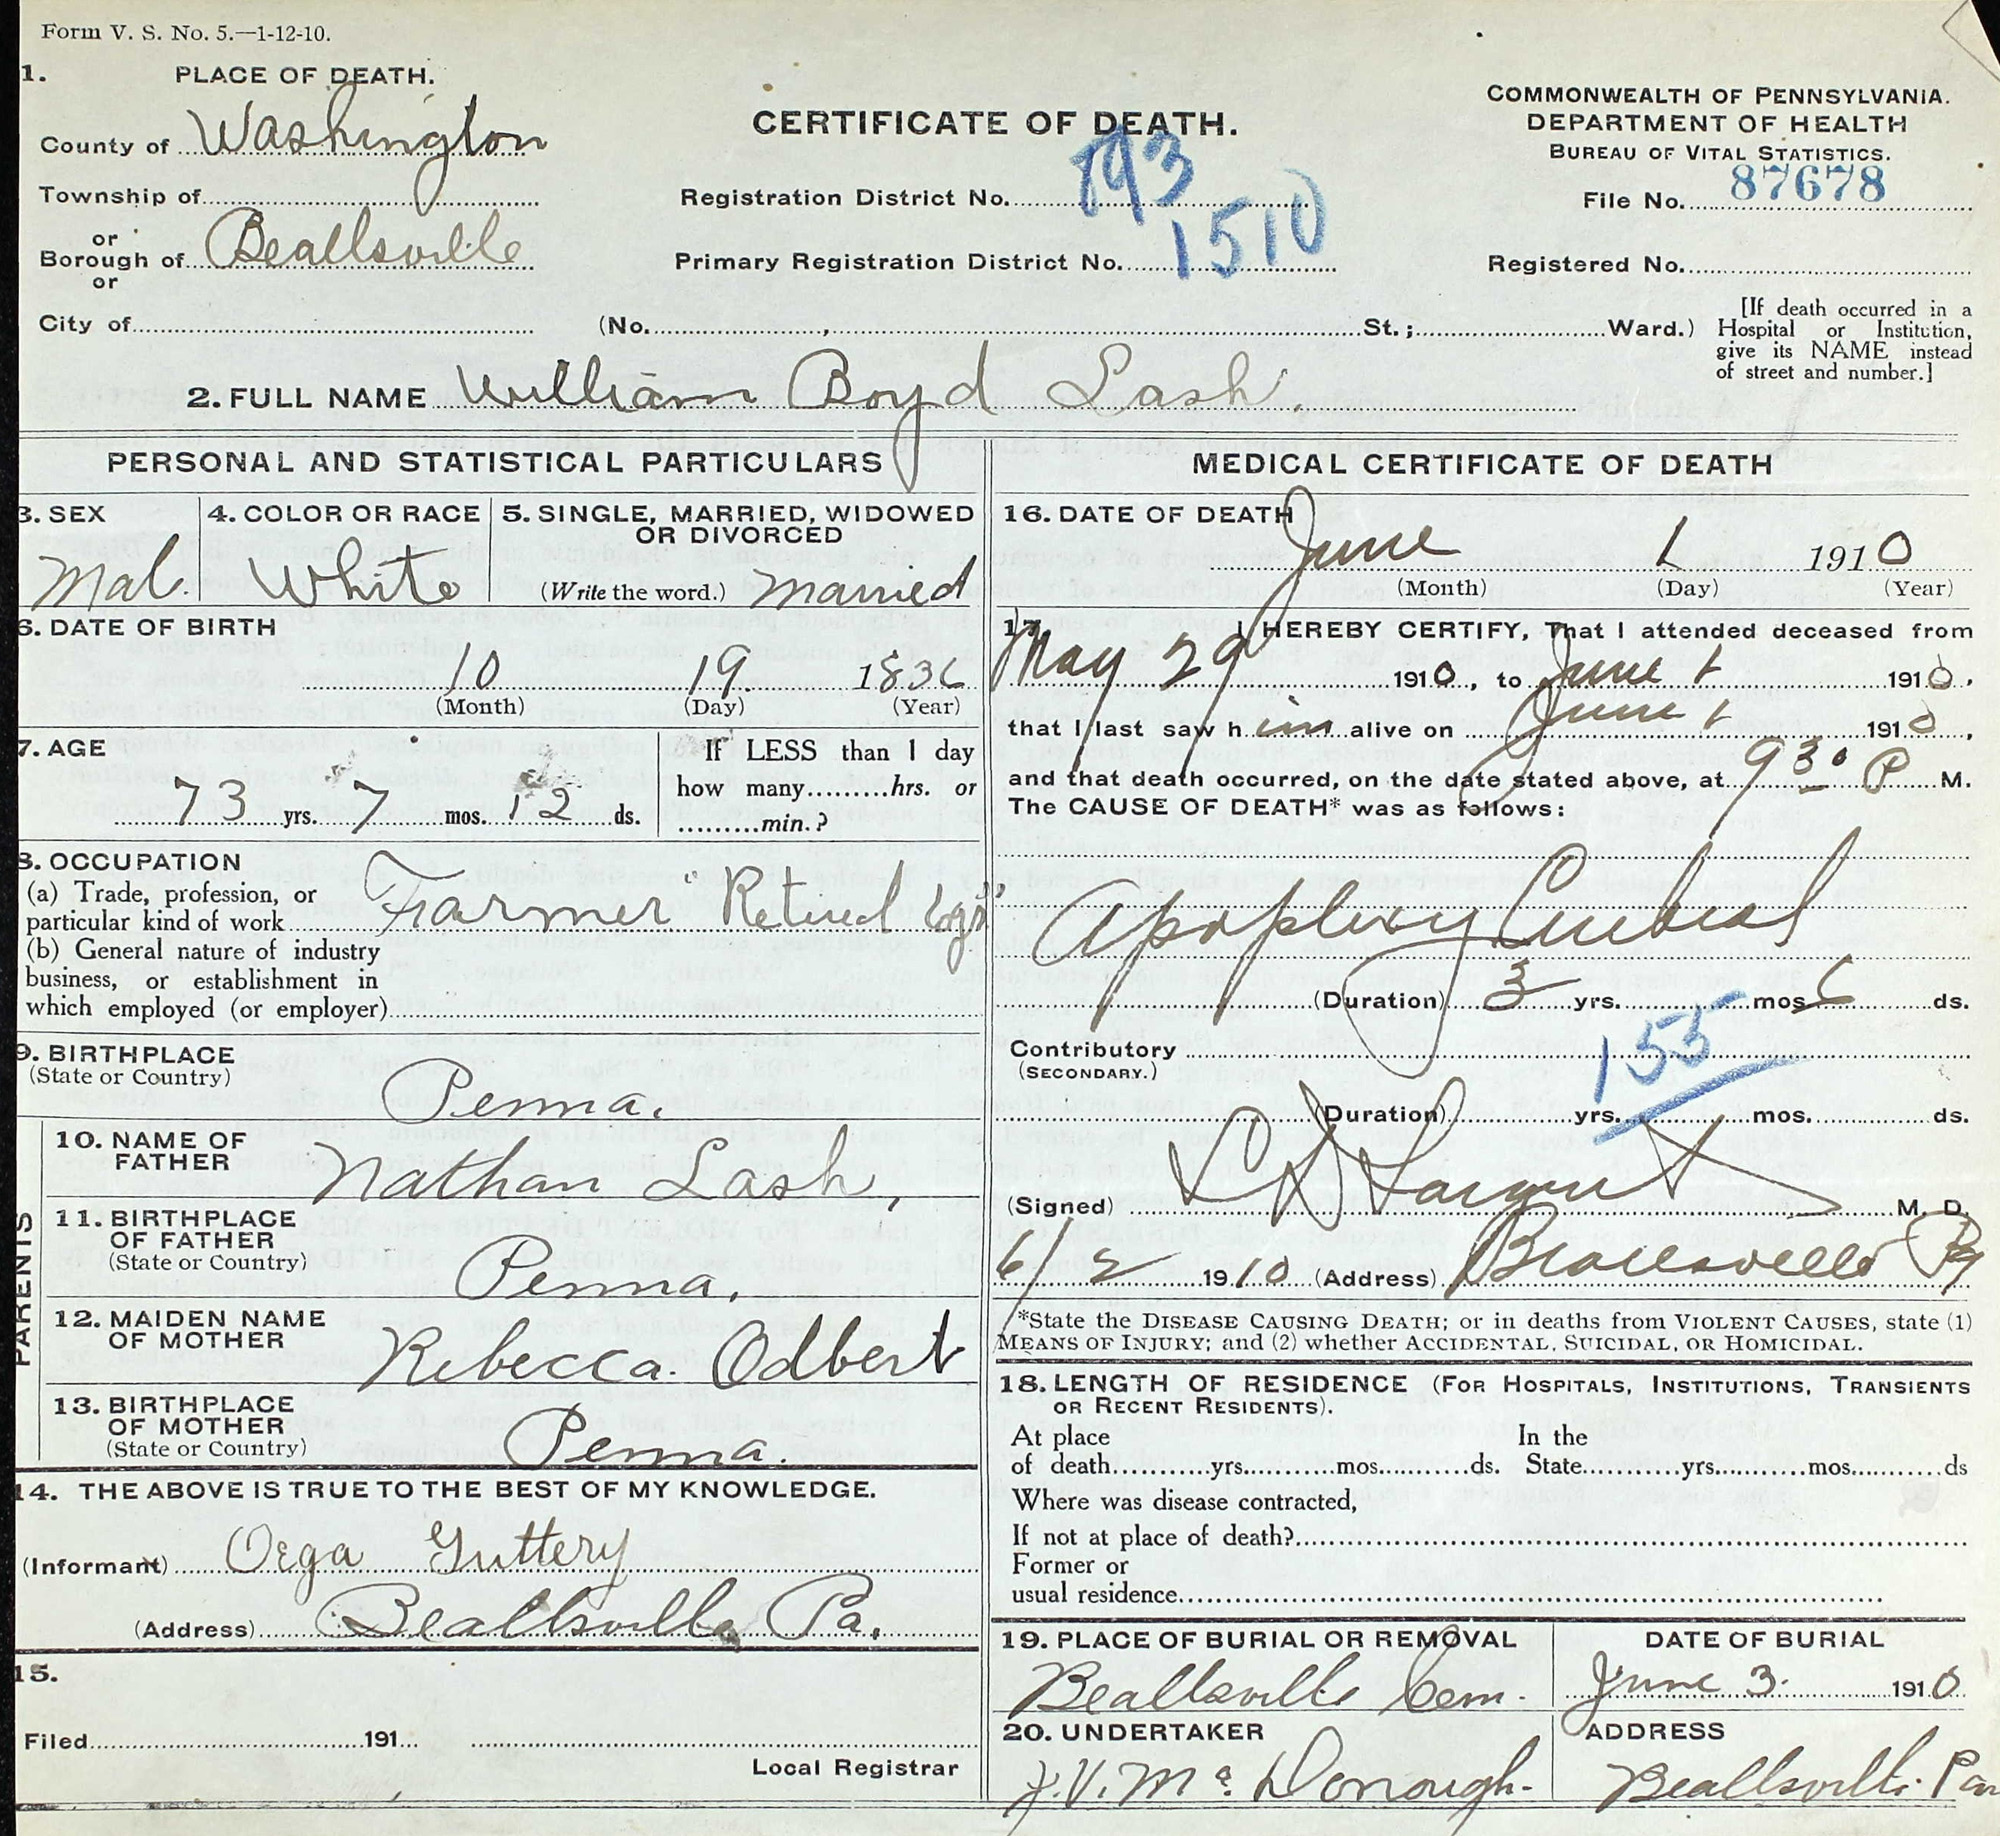 Form V. S. No. 5.—1-12-10.
1. PLACE OF DEATH.
County of Washington
Township of
or
Borough of Beallsville
or
City of
CERTIFICATE OF DEATH.
Registration District No. 893
Primary Registration District No. 1510
(No. , St.; Ward.)
COMMONWEALTH OF PENNSYLVANIA.
DEPARTMENT OF HEALTH
BUREAU OF VITAL STATISTICS.
File No. 87678
Registered No.
[If death occurred in a
Hospital or Institution,
give its NAME instead
of street and number.]
2. FULL NAME William Boyd Lash.
PERSONAL AND STATISTICAL PARTICULARS
3. SEX
Mal.
4. COLOR OR RACE
White
5. SINGLE, MARRIED, WIDOWED
OR DIVORCED
(Write the word.) Married
6. DATE OF BIRTH
10 19. 1836
(Month) (Day) (Year)
7. AGE
73 yrs. 7 mos. 12 ds.
If LESS than 1 day
how many hrs. or
min.?
8. OCCUPATION
(a) Trade, profession, or
particular kind of work Farmer "Retired"
(b) General nature of industry
business, or establishment in
which employed (or employer)
9. BIRTHPLACE
(State or Country)
Penna.
PARENTS
10. NAME OF
FATHER Nathan Lash,
11. BIRTHPLACE
OF FATHER
(State or Country) Penna.
12. MAIDEN NAME
OF MOTHER Rebecca. Odbert
13. BIRTHPLACE
OF MOTHER
(State or Country) Penna.
14. THE ABOVE IS TRUE TO THE BEST OF MY KNOWLEDGE.
(Informant) Orga Guttery
(Address) Beallsville Pa.
15.
Filed 191
Local Registrar
MEDICAL CERTIFICATE OF DEATH
16. DATE OF DEATH
June 1 1910
(Month) (Day) (Year)
17. I HEREBY CERTIFY, That I attended deceased from
May 29 1910, to June 1 1910,
that I last saw him alive on June 1 1910,
and that death occurred, on the date stated above, at 930 P M.
The CAUSE OF DEATH* was as follows:
Apoplexy Cerebral
(Duration) 3 yrs. mos 6 ds.
Contributory
(SECONDARY.)
155
(Duration) yrs. mos. ds.
(Signed) M. D.
6/2 1910 (Address) Beallsville Pa
*State the DISEASE CAUSING DEATH; or in deaths from VIOLENT CAUSES, state (1)
MEANS OF INJURY; and (2) whether ACCIDENTAL, SUICIDAL, OR HOMICIDAL.
18. LENGTH OF RESIDENCE (FOR HOSPITALS, INSTITUTIONS, TRANSIENTS
OR RECENT RESIDENTS).
At place In the
of death yrs. mos. ds. State yrs. mos. ds
Where was disease contracted,
If not at place of death?
Former or
usual residence
19. PLACE OF BURIAL OR REMOVAL
Beallsville Cem.
DATE OF BURIAL
June 3. 1910
20. UNDERTAKER
J. V. McDonough.
ADDRESS
Beallsville. Pa